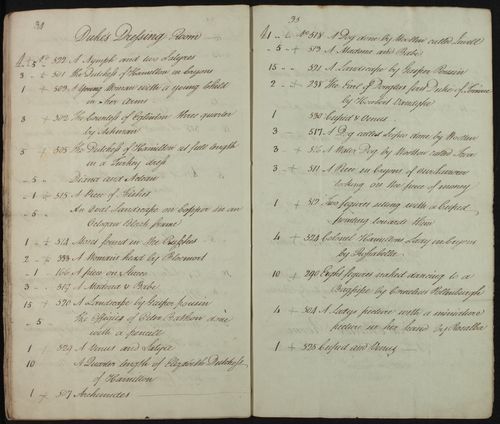 34
Dukes Dressing Room
5 No 522 A Nymph and two Satyres
3 501 The Dutchess of Hamilton in Crayons
1 + 503 A Young Woman with a young Child
in Her Arms
3 502 The Countess of Eglinton three quarter
by
5 505 The Dutchess of Hamilton at full length
in a Turkey dress
5 Diana and Acteon
1 + 515 A Piece of Fishes
5 An Oval Landscape on Copper in an
Octogon Black frame
1 + 514 Moses found in the
2 + 533 A Womans head by Bloemart
1 + 160 A piece on
3 + 519 A Madona & Babe
15 + 520 A Landscape by Gasper pousin
5 The Effigies of done
with a pencell
1 + 529 A Venus and Satyre
10 A Quarter length of Elizabeth Dutchess
of Hamilton
1 + 507 Archimides
35
1 No 518 A Dog done by Wootton called Jewell
5 + 513 A Madona and Babe
15 521 A Landscape by Gasper Pousin
2 238 The First of Douglas last Duke of Touraine
by Herbert
1 530 Cupid & Venus
3 517 A Dog called done by Wootton
3 + 516 A Water Dog by Wootton called
3 + 511 A Piece in Crayons of
looking on the piece of money
1 + 512 Two figures sitting with a Cupid
pointing towards them
4 + 524 Colonel Hamiltons Lady in Crayons
by
10 + 290 Eight figures naked dancing to a
Bagpipe by Cornelius Polenburgh
4 + 504 A Large picture with a miniature
picture in her hand by Rosalba
1 + 525 Cupid and Venus